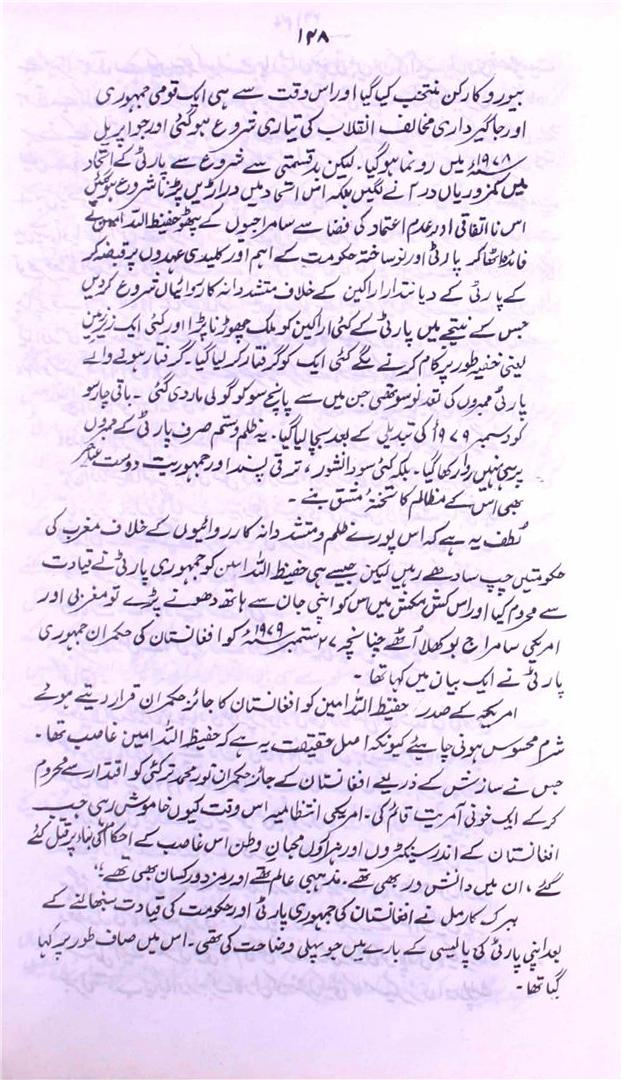 ۱۲۸
بیورو کا رکن منتخب کیا گیا اور اس وقت سے ہی ایک قومی جمہوری
اور جاگیرداری مخالف انقلاب کی تیاری شروع ہو گئی اور جو اپریل
۱۹۷۸ء میں رونما ہو گیا۔ لیکن بدقسمتی سے شروع سے پارٹی کے اتحاد
میں کمزوریاں در آنے لگیں بلکہ اس اتحاد میں دراڑیں پڑنا شروع ہو گئیں
اس نااتفاقی اور عدم اعتماد کی فضا سے سامراجیوں کے پٹھو حفیظ اللہ امین نے
فائدہ اٹھا کر پارٹی اور نو ساختہ حکومت کے اہم اور کلیدی عہدوں پر قبضہ کر
کے پارٹی کے دیانتدار اراکین کے خلاف متشددانہ کارروائیاں شروع کر دیں
جس کے نتیجے میں پارٹی کے کئی اراکین کو ملک چھوڑنا پڑا اور کئی ایک زیر زمین
یعنی خفیہ طور پر کام کرنے لگے کئی ایک کو گرفتار کر لیا گیا۔ گرفتار ہونے والے
پارٹی ممبروں کی تعداد نو سو تھی جن میں سے پانچ سو کو گولی مار دی گئی۔ باقی چار سو
کو دسمبر ۱۹۷۹ء کی تبدیلی کے بعد بچا لیا گیا۔ یہ ظلم و ستم صرف پارٹی کے ممبروں
پر ہی نہیں روا رکھا گیا۔ بلکہ کئی سو دانشور، ترقی پسند اور جمہوریت دوست عناصر
بھی اس کے مظالم کا تختۂ مشق بنے۔
لطف یہ ہے کہ اس پورے ظلم و متشددانہ کارروائیوں کے خلاف مغرب کی
حکومتیں چپ سادھے رہیں لیکن جیسے ہی حفیظ اللہ امین کو جمہوری پارٹی نے قیادت
سے محروم کیا اور اس کش مکش میں اس کو اپنی جان سے ہاتھ دھونے پڑے تو مغربی اور
امریکی سامراج بوکھلا اُٹھے چنانچہ ۲۷ ستمبر ۱۹۷۹ء کو افغانستان کی حکمران جمہوری
پارٹی نے ایک بیان میں کہا تھا۔
امریکہ کے صدر، حفیظ اللہ امین کو افغانستان کا جائز حکمران قرار دیتے ہوئے
شرم محسوس ہونی چاہیئے کیونکہ اصل حقیقت یہ ہے کہ حفیظ اللہ امین غاصب تھا۔
جس نے سازش کے ذریعے افغانستان کے جائز حکمران نور محمد ترکئی کو اقتدار سے محروم
کر کے ایک خونی آمریت قائم کی۔ امریکی انتظامیہ اس وقت کیوں خاموش رہی جب
افغانستان کے اندر سینکڑوں اور ہزاروں محبان وطن اس غاصب کے احکام کی بناء پر قتل کئے
گئے، ان میں دانش ور بھی تھے، مذہبی عالم تھے اور مزدور کسان بھی تھے“
ببرک کارمل نے افغانستان کی جمہوری پارٹی اور حکومت کی قیادت سنبھالنے کے
بعد اپنی پارٹی کی پالیسی کے بارے میں جو پہلی وضاحت کی تھی۔ اس میں صاف طور پر کہا
گیا تھا۔